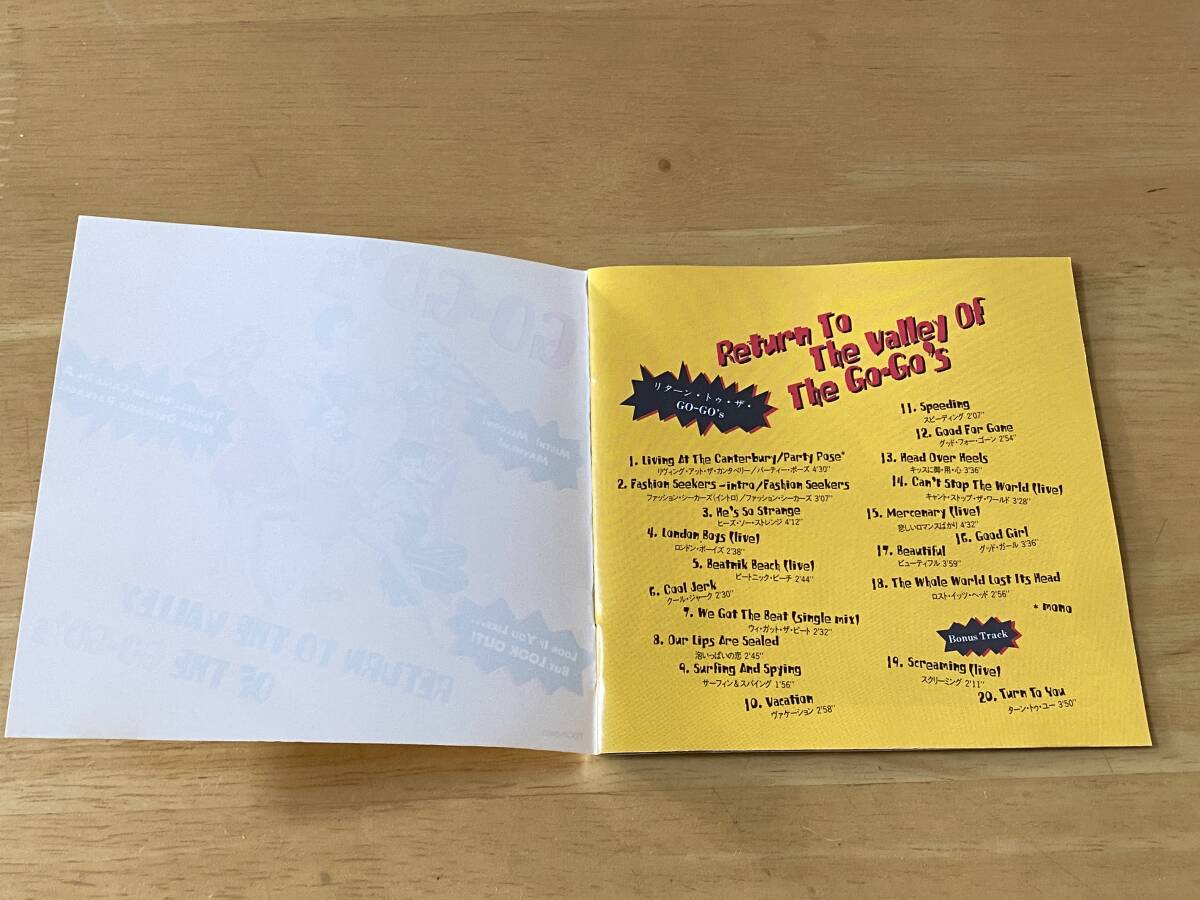 Return To
The Valley Of
The Go-Go's
リターン・トゥ・ザ・
GO-GO's
1. Living At The Canterbury/Party Pose*
リヴィング・アット・ザ・カンタベリー/パーティー・ポーズ 4'30"
2. Fashion Seekers -intro/Fashion Seekers
ファッション・シーカーズ(イントロ)/ファッション・シーカーズ 3'07"
3. He's So Strange
ヒーズ・ソー・ストレンジ 4'12"
4. London Boys (live)
ロンドン・ボーイズ 2'38"
5. Beatnik Beach (live)
ビートニック・ビーチ 2'44"
6. Cool Jerk
クール・ジャーク 2'30"
7. We Got The Beat (single mix)
ウィ・ガット・ザ・ビート 2'32"
8. Our Lips Are Sealed
泡いっぱいの恋 2'45"
9. Surfing And Spying
サーフィン&スパイング 1'56"
10. Vacation
ヴァケーション 2'58"
11. Speeding
スピーディング 2'07"
12. Good For Gone
グッド・フォー・ゴーン 2'54"
13. Head Over Heels
キッスに御・用・心 3'36"
14. Can't Stop The World (live)
キャント・ストップ・ザ・ワールド 3'28"
15. Mercenary (live)
悲しいロマンスばかり 4'32"
16. Good Girl
グッド・ガール 3'36"
17. Beautiful
ビューティフル 3'59"
18. The Whole World Lost Its Head
ロスト・イッツ・ヘッド 2'56"
* mono
Bonus Track
19. Screaming (live)
スクリーミング 2'11"
20. Turn To You
ターン・トゥ・ユー 3'50"
GO-GO'S
RETURN TO THE VALLEY
OF THE
Look If You Like...
But LOOK OUT!